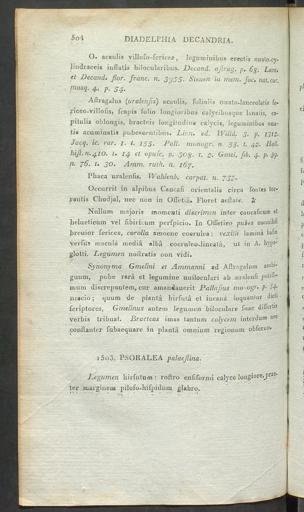 504 DIADELPHIA DECANDRIA.
O. acaulis villoso-sericea, leguminibus erectis ovato-cy-
lindraceis inflatis bilocularibus. Decand. astrag. p. 65. Lam.
et Decand. flor. franc. n. 3935. Steven in mem. soc. nat. cur.
mosq. 4. p. 54.
Astragalus (uralensis) acaulis, foliolis ovato-lanceolatis se-
riceo-villosis, scapis folio longioribus calycibusque lanatis, ca-
pitulis oblongis, bracteis longitudine calycis, leguminibus ova-
tis acuminatis pubescentibus. Linn. ed. Willd. 3. p. 1312.
Jacq. ic. rar. 1. t. 155. Pall. monogr. n. 33. t. 42. Hal.
hist. n. 410. t. 14 et opusc. n. 308. t. 7. Gmel. sib. 4. p. 59.
n. 76. t. 30. Amm. ruth. n. 167.
Phaca uralensis. Wahlenb. carpat. n. 737.
Occurrit in alpibus Caucasi orientalis circa fontes tor-
rentis Chudjal, nec non in Ossetia. Floret aestate. ♃
Nullum majoris momenti discrimen inter caucasicam et
helveticum vel sibiricum perspicio. In Ossetico pubes
brevior sericea, corolla amoene coerulea: vexilli lamina
versus macula media alba coeruleo-lineata, ut in A. hypo-
glotti. Legumen nostratis non vidi.
Synonyma Gmelini et Ammanni ad Astragalum ambi-
guum, pube rara et legumine uniloculari ab acaulis
mum discrepantem, cur amandaverit Pallasius monogr. p. 54.
nescio; quum de planta hirsuta et incana loquantur dicti
scriptores, Gmelinus autem legumen biloculare suae disertis
verbis tribuat. Bracteas imas tantum calycem interdum
constanter subaequare in planta omnium regionum observo.
1503. PSORALEA palaestina.
Legumen hirsutum: rostro ensiformi calyce longiore, prae-
ter marginem piloso-hispidum glabro.